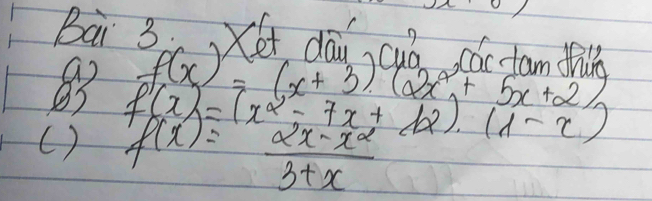 Bài 3. Xét dấu của các tam thức
a) f(x) = (x + 3).(2x² + 5x + 2)
b) f(x) = (x² - 7x + 12).(1 - x)
c) f(x) = 2x - x² / 3 + x